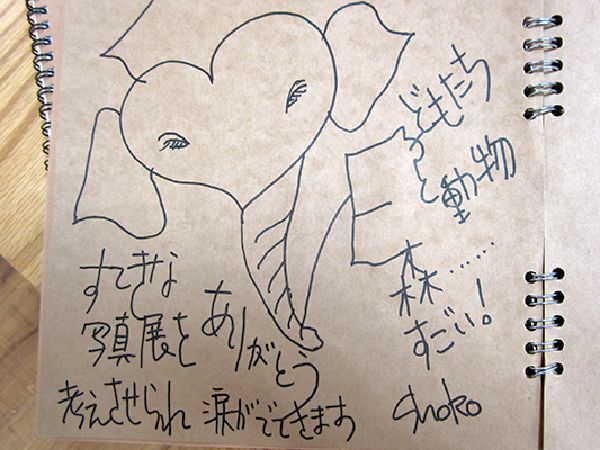 子どもたち
と動物
森……
すごい!
すてきな
写真展を
ありがとう
考えさせられ 涙がでてきます
shoko